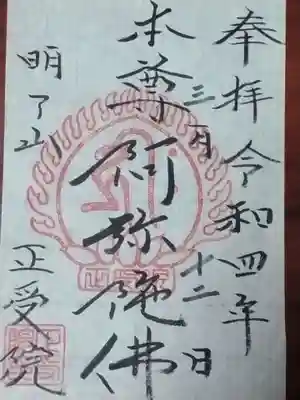 奉拝 令和四年
三月十二日
本尊 阿弥陀佛
明了山
正受院